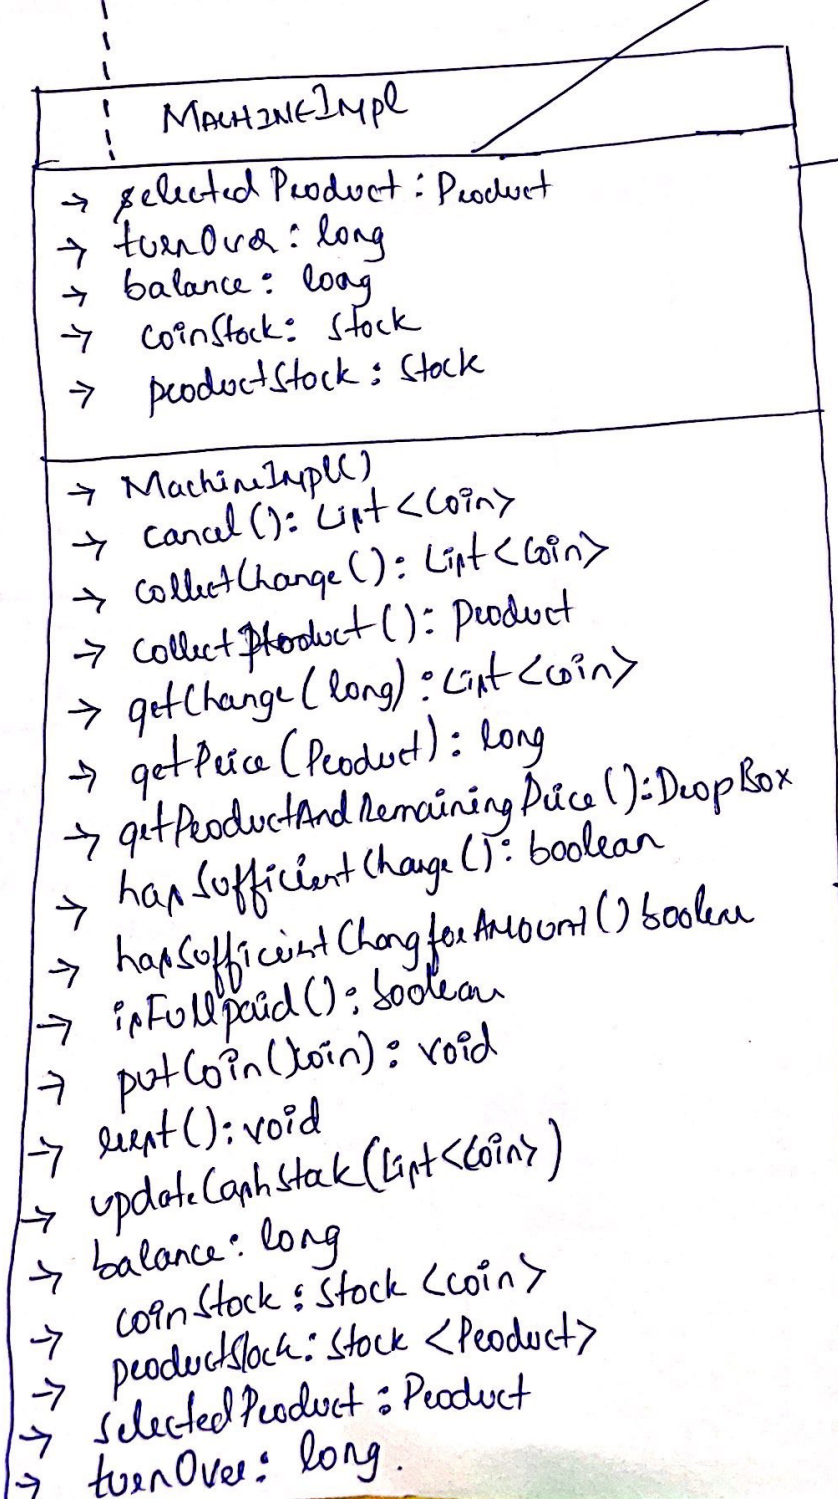 MACHINEImpl
→ selectedProduct : Product
→ turnOver : long
→ balance : long
→ coinStock : Stock
→ productStock : Stock
→ MachineImpl()
→ cancel() : List <Coin>
→ collectChange() : List <Coin>
→ collectProduct() : Product
→ getChange (long) : List <coin>
→ getPrice (Product) : long
→ getProductAndRemainingPrice () : DropBox
→ hasSufficientChange () : boolean
→ hasSufficientChangforAmount ()
→ isFullpaid () : boolean
→ putCoin (coin) : void
→ reset () : void
→ updateCashStak (List <Coin>)
→ balance : long
→ coinStock : Stock <coin>
→ productStock : Stock <Product>
→ selectedProduct : Product
→ turnOver : long.